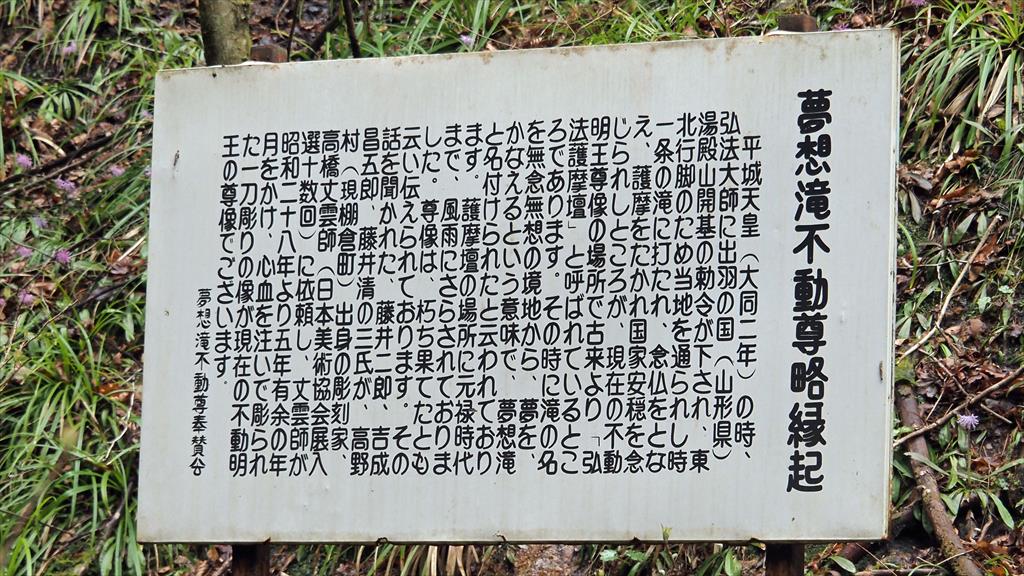 夢想滝不動尊略縁起
平城天皇(大同二年)の時、
弘法大師に出羽の国(山形県)
湯殿山開基の勅令が下され、東
北行脚のため当地を通られし時
一条の滝に打たれ、念仏をとな
え、護摩をたかれ国家安穏を念
じられしところが、現在の不動
明王尊像の場所で古来より「弘
法護摩壇」と呼ばれているとこ
ろであります。その時に滝の名
を無念無想の境地から、夢を
かなえるという意味で、夢想滝
と名付けられたと云われており
ます。護摩壇の場所に元禄時代
まで、風雨にさらされておりま
した。尊像は、朽ち果てたとも
云い伝えられております。その
話を聞かれた、藤井二郎、吉成
昌五郎、藤井清の三氏が、高野
村(現棚倉町)出身の彫刻家、
高橋丈雲師(日本美術協会展入
選十数回)に依頼し、丈雲師が
昭和二十八年より五年有余の年
月をかけ、心血を注いで彫られ
た一刀彫りの像が現在の不動明
王の尊像でございます。
夢想滝不動尊奉賛会